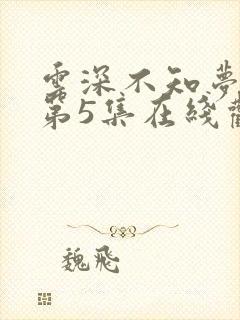 雲深不知夢
第5集在綫觀
魏飛